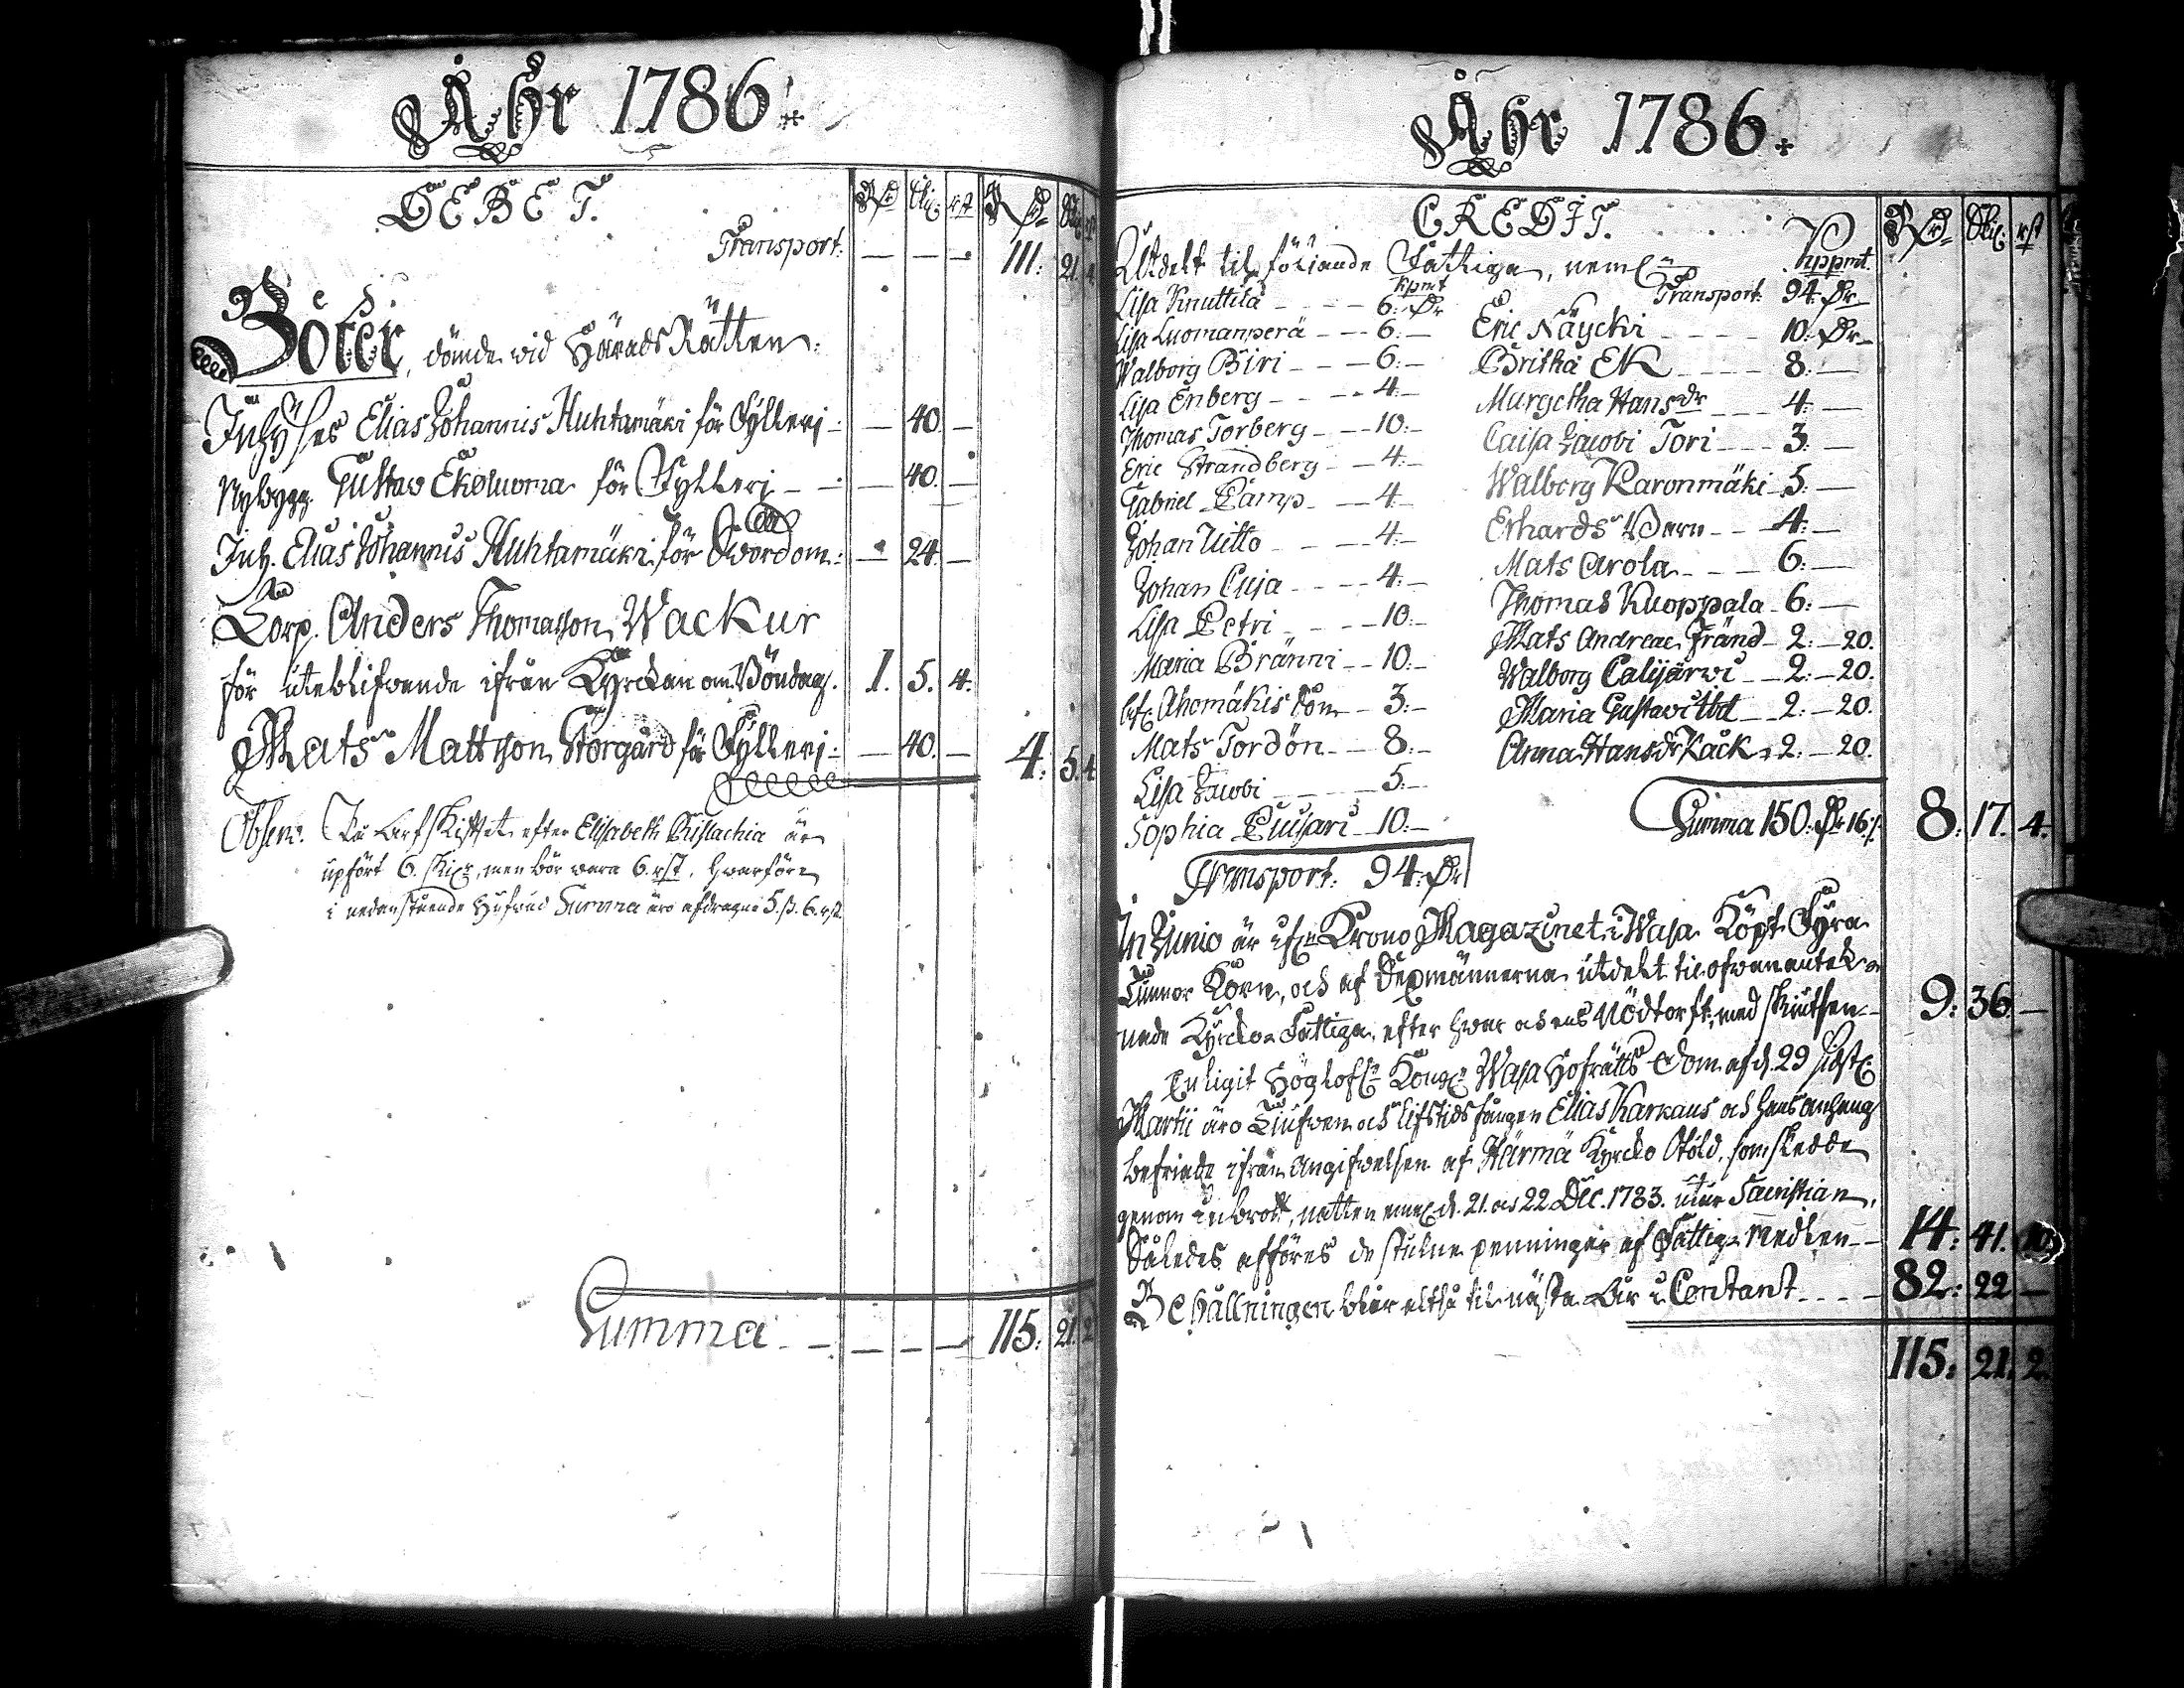 Åhr 1786.
DEBET. Rd Skil. rst Rd Skil. rst
Transport. — — — 111. 21. 4
Böter, dömde wid Härads Rätten.
Inhyses Elias Johannis Huhtamäki för Fylleri — 40. —
Nybygg. Gustav Ekoluoma för Fylleri — — 40. —
Inh. Elias Johannis Huhtamäki för Swordom — 24. —
Corp. Anders Thomasson Wackur
för uteblifwande ifrån Kyrckan om Böndag. 1. 5. 4.
Mats Mattsson Storgård för Fylleri — 40. — 4. 5. 4
Observ. På Arfskiftet efter Elisabeth är
upfört 6. skil., men bör wara 6. rst. hwarföre
i nedanstående hufwud Summa äro afdragne 5. ß. 6. rst.
Summa — — — — 115. 21. 2
Åhr 1786.
CREDIT. Rd Skil. rst
Utdelt til följande Fattiga, neml. Kppmt.
Lisa Knuttila — 6. Dr
Lisa Luomanperä — 6. —
Walborg Biri — 6. —
Lisa Enberg — 4. —
Thomas Torberg — 10. —
Eric Strandberg — 4. —
Gabriel Camp — 4. —
Johan Uitto — 4. —
Johan Cuja — 4. —
Lisa Petri — 10. —
Maria Bränni — 10. —
Ahomäkis Son — 3. —
Mats Tordön — 8. —
Lisa Jacobi — 5. —
Sophia Puusari — 10. —
Transport. 94. Dr
Transport. 94. Dr —
Eric Näycki — 10. Dr —
Britha Ek — 8. —
Margetha Hansdr — 4. —
Caisa Jacobi Tori — 3. —
Walborg Karonmäki — 5. —
Erhards Barn — 4. —
Mats Arola — 6. —
Thomas Kuoppala — 6. —
Mats Andreae Fränd — 2. — 20.
Walborg Calijärwi — 2. — 20.
Maria Gustavi — 2. — 20.
Anna Hansdr Kack — 2. — 20.
Summa 150. Dr 16. 8. 17. 4.
In Junio är ifrån Krono Magazinet i Wasa Köpt Fyra
Tunnor Korn, och af Sexmännerna utdelt til ofwanantek-
nade Kyrcko Fattiga, efter hwar och ens Nödtorft, med skiutsen — 9. 36. —
Enligit Höglofl. Kongl. Wasa Hofrätts Dom af d. 29 sidstl.
Martii äro Tiufwen och lifstids fången Elias Karkaus och hans anhang
befriade ifrån angifwelsen af Härmä Kyrcko Stöld, som skedde
genom inbrott, natten emel. d. 21. och 22. Dec. 1783. utur Sacristian.
Således afföres de stulne penningar af Fattig-Medlen — 14. 41. 10.
Behållningen blir altså til nästa År i Contant — 82. 22. —
115. 21. 2.